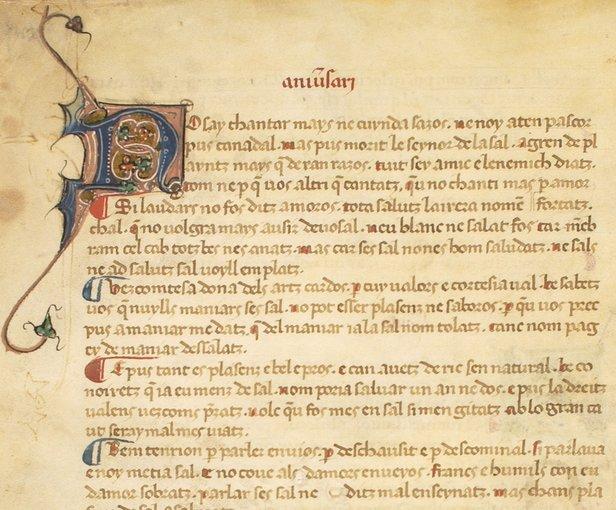 aniũsari
Nosay chantar mays ne cuynda sazos. ne noy aten pascor
pus canadal. mas pus morit le seynor de la sal. agren de pl
ayntz mays q̃ de ran razos. tuit sey amic e lenemich diatz.
com ne p q̃ uos altri q̃ cantatz, qu no chanti mas p amor
Si laudars no fos ditz amoros. tota salutz
chal. q̃ no uolgra mays ausir deuosal. neu blanc ne salat fos car
ram cel cab totz bes nes anatz. mas car ses sal nones hom saludatz. ne sals
ne ad salutz sal uoyll em platz.
Vezcomtesa dona dels artz cardos. p cuy ualors e cortesia ual. be sabetz
uos q̃ nuylls maniars ses sal. no pot esser plasenz ne saboros. p qu uos prec
pus a maniar me datz. q̃ del maniar ia la sal nom tolatz. cane nom pag
ey de maniar dessalatz.
E pus tant es plasenz e bel e pros. e can auetz de ric sen natural. be co
noiretz q̃ ia eu menz de sal. nom poria saluar un an ne dos. e pus la dreitz
ualens uezcoms p̃zatz. uolc qu fos mes en sal si men gitatz. ab lo gran ca
ut seray mal mes uiatz.
Bem tenrion p parler enuios. p deschausit e p descominal. si parlaua
e noy metia sal. e no coue als damors enueyos. francs e humils con eu
damor sobratz. parlar ses sal ne ditz mal enseynatz. mas chans pla